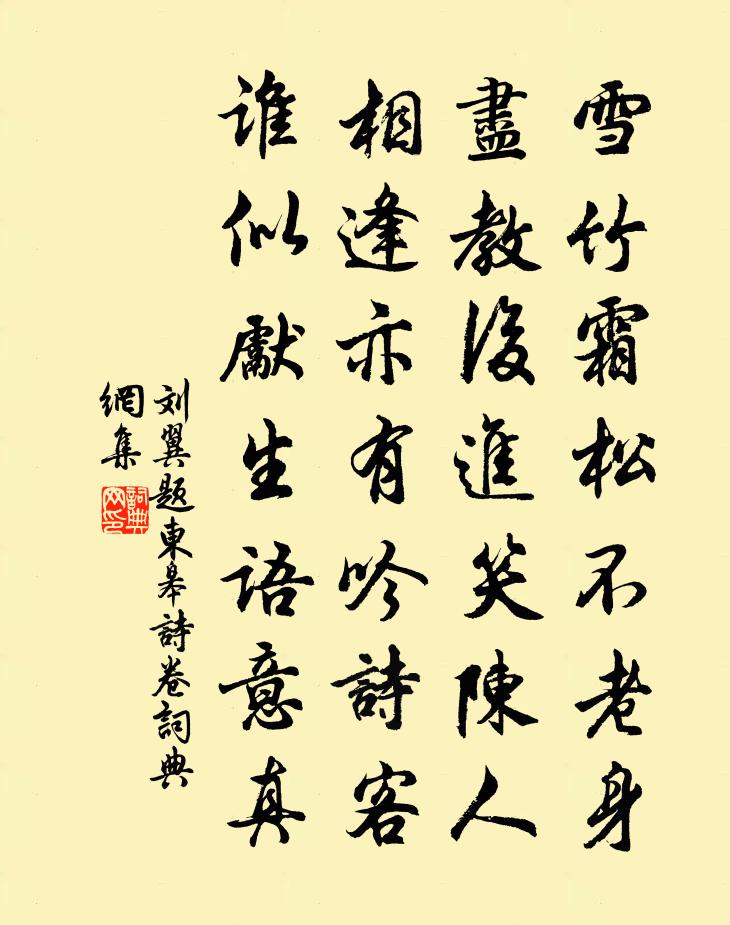 雪竹霜松不老身
盡教後進笑陳人
相逢亦有吟詩客
誰似獻生語意真
刘翼题東皋詩卷詞典
網集
詞典
网印